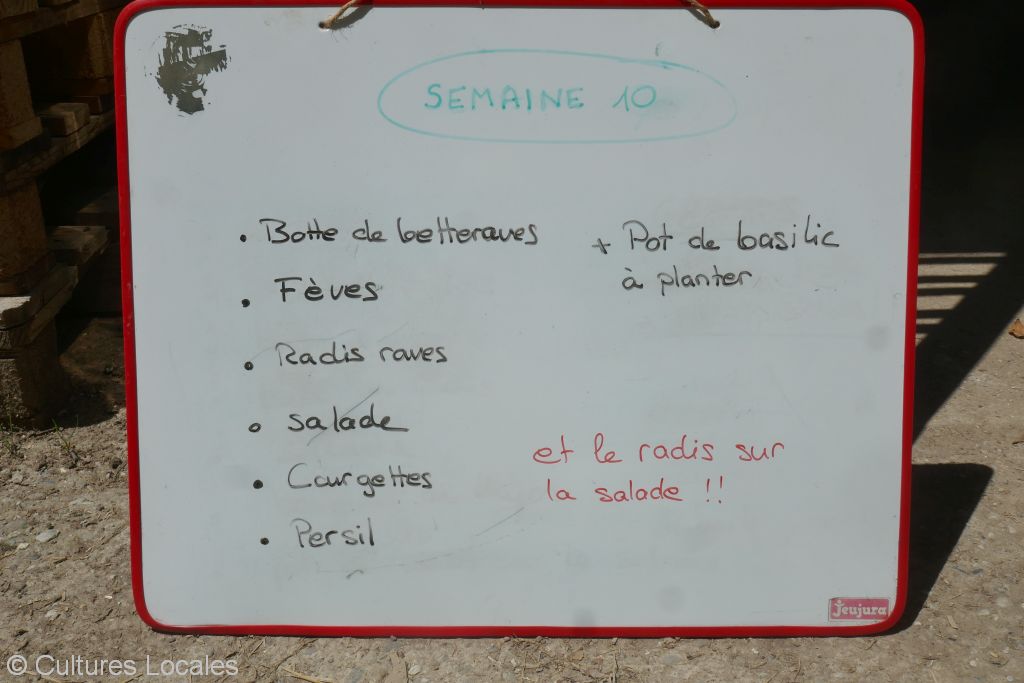 SEMAINE 10
• Botte de betteraves
• Fèves
• Radis raves
• salade
• Courgettes
• Persil
+ Pot de basilic
à planter
et le radis sur
la salade !!
Jeujura
© Cultures Locales